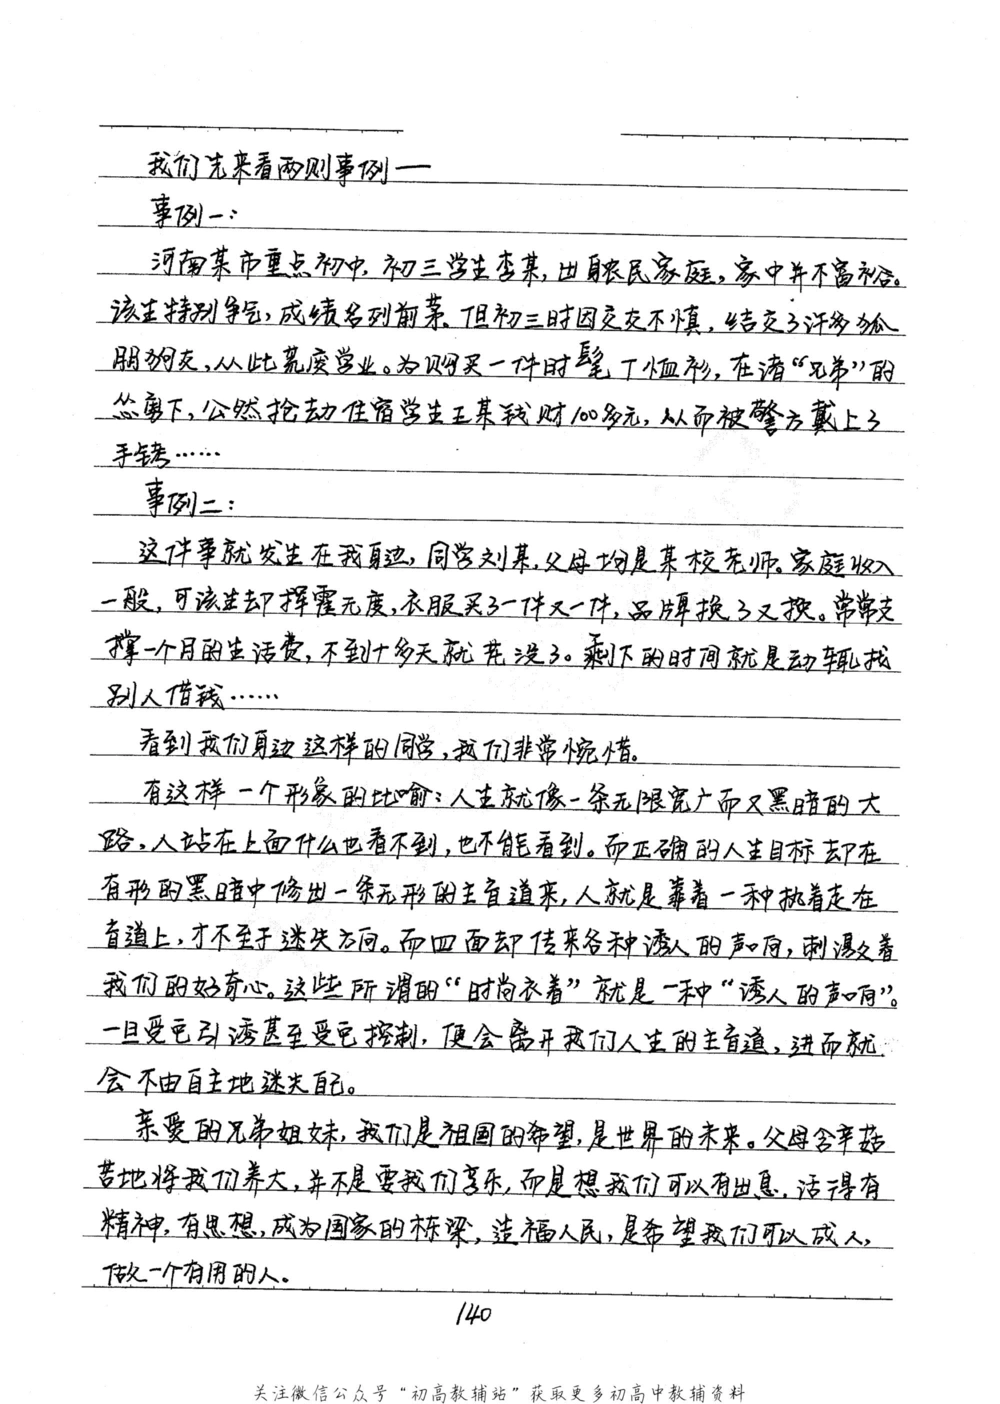 我们先来看两则事例——
事例一：
河南某市重点初中，初三学生李某，出身农民家庭，家中并不富裕。
该生特别争气，成绩名列前茅。但初三时因交友不慎，结交了许多狐
朋狗友，从此荒废学业。为购买一件时髦T恤衫，在诸“兄弟”的
怂恿下，公然抢劫住宿学生王某钱财100多元，从而被警方戴上了
手铐……
事例二：
这件事就发生在我身边，同学刘某，父母均是某校老师。家庭收入
一般，可该生却挥霍无度，衣服买了一件又一件，品牌换了又换。常常支
撑一个月的生活费，不到十多天就花没了。剩下的时间就是动辄找
别人借钱……
看到我们身边这样的同学，我们非常惋惜。
有这样一个形象的比喻：人生就像一条无限宽广而又黑暗的大
路，人站在上面什么也看不到，也不能看到。而正确的人生目标却在
有形的黑暗中修出一条无形的主盲道来，人就是靠着一种执着走在
盲道上，才不至于迷失方向。而四面却传来各种诱人的声响，刺激着
我们的好奇心。这些所谓的“时尚衣着”就是一种“诱人的声响”。
一旦受它引诱甚至受它控制，便会离开我们人生的主盲道，进而就
会不由自主地迷失自己。
亲爱的兄弟姐妹，我们是祖国的希望，是世界的未来。父母含辛茹
苦地将我们养大，并不是要我们享乐，而是想我们可以有出息，活得有
精神，有思想，成为国家的栋梁，造福人民，是希望我们可以成人，
做一个有用的人。
140
关注微信公众号“初高教辅站”获取更多初高中教辅资料